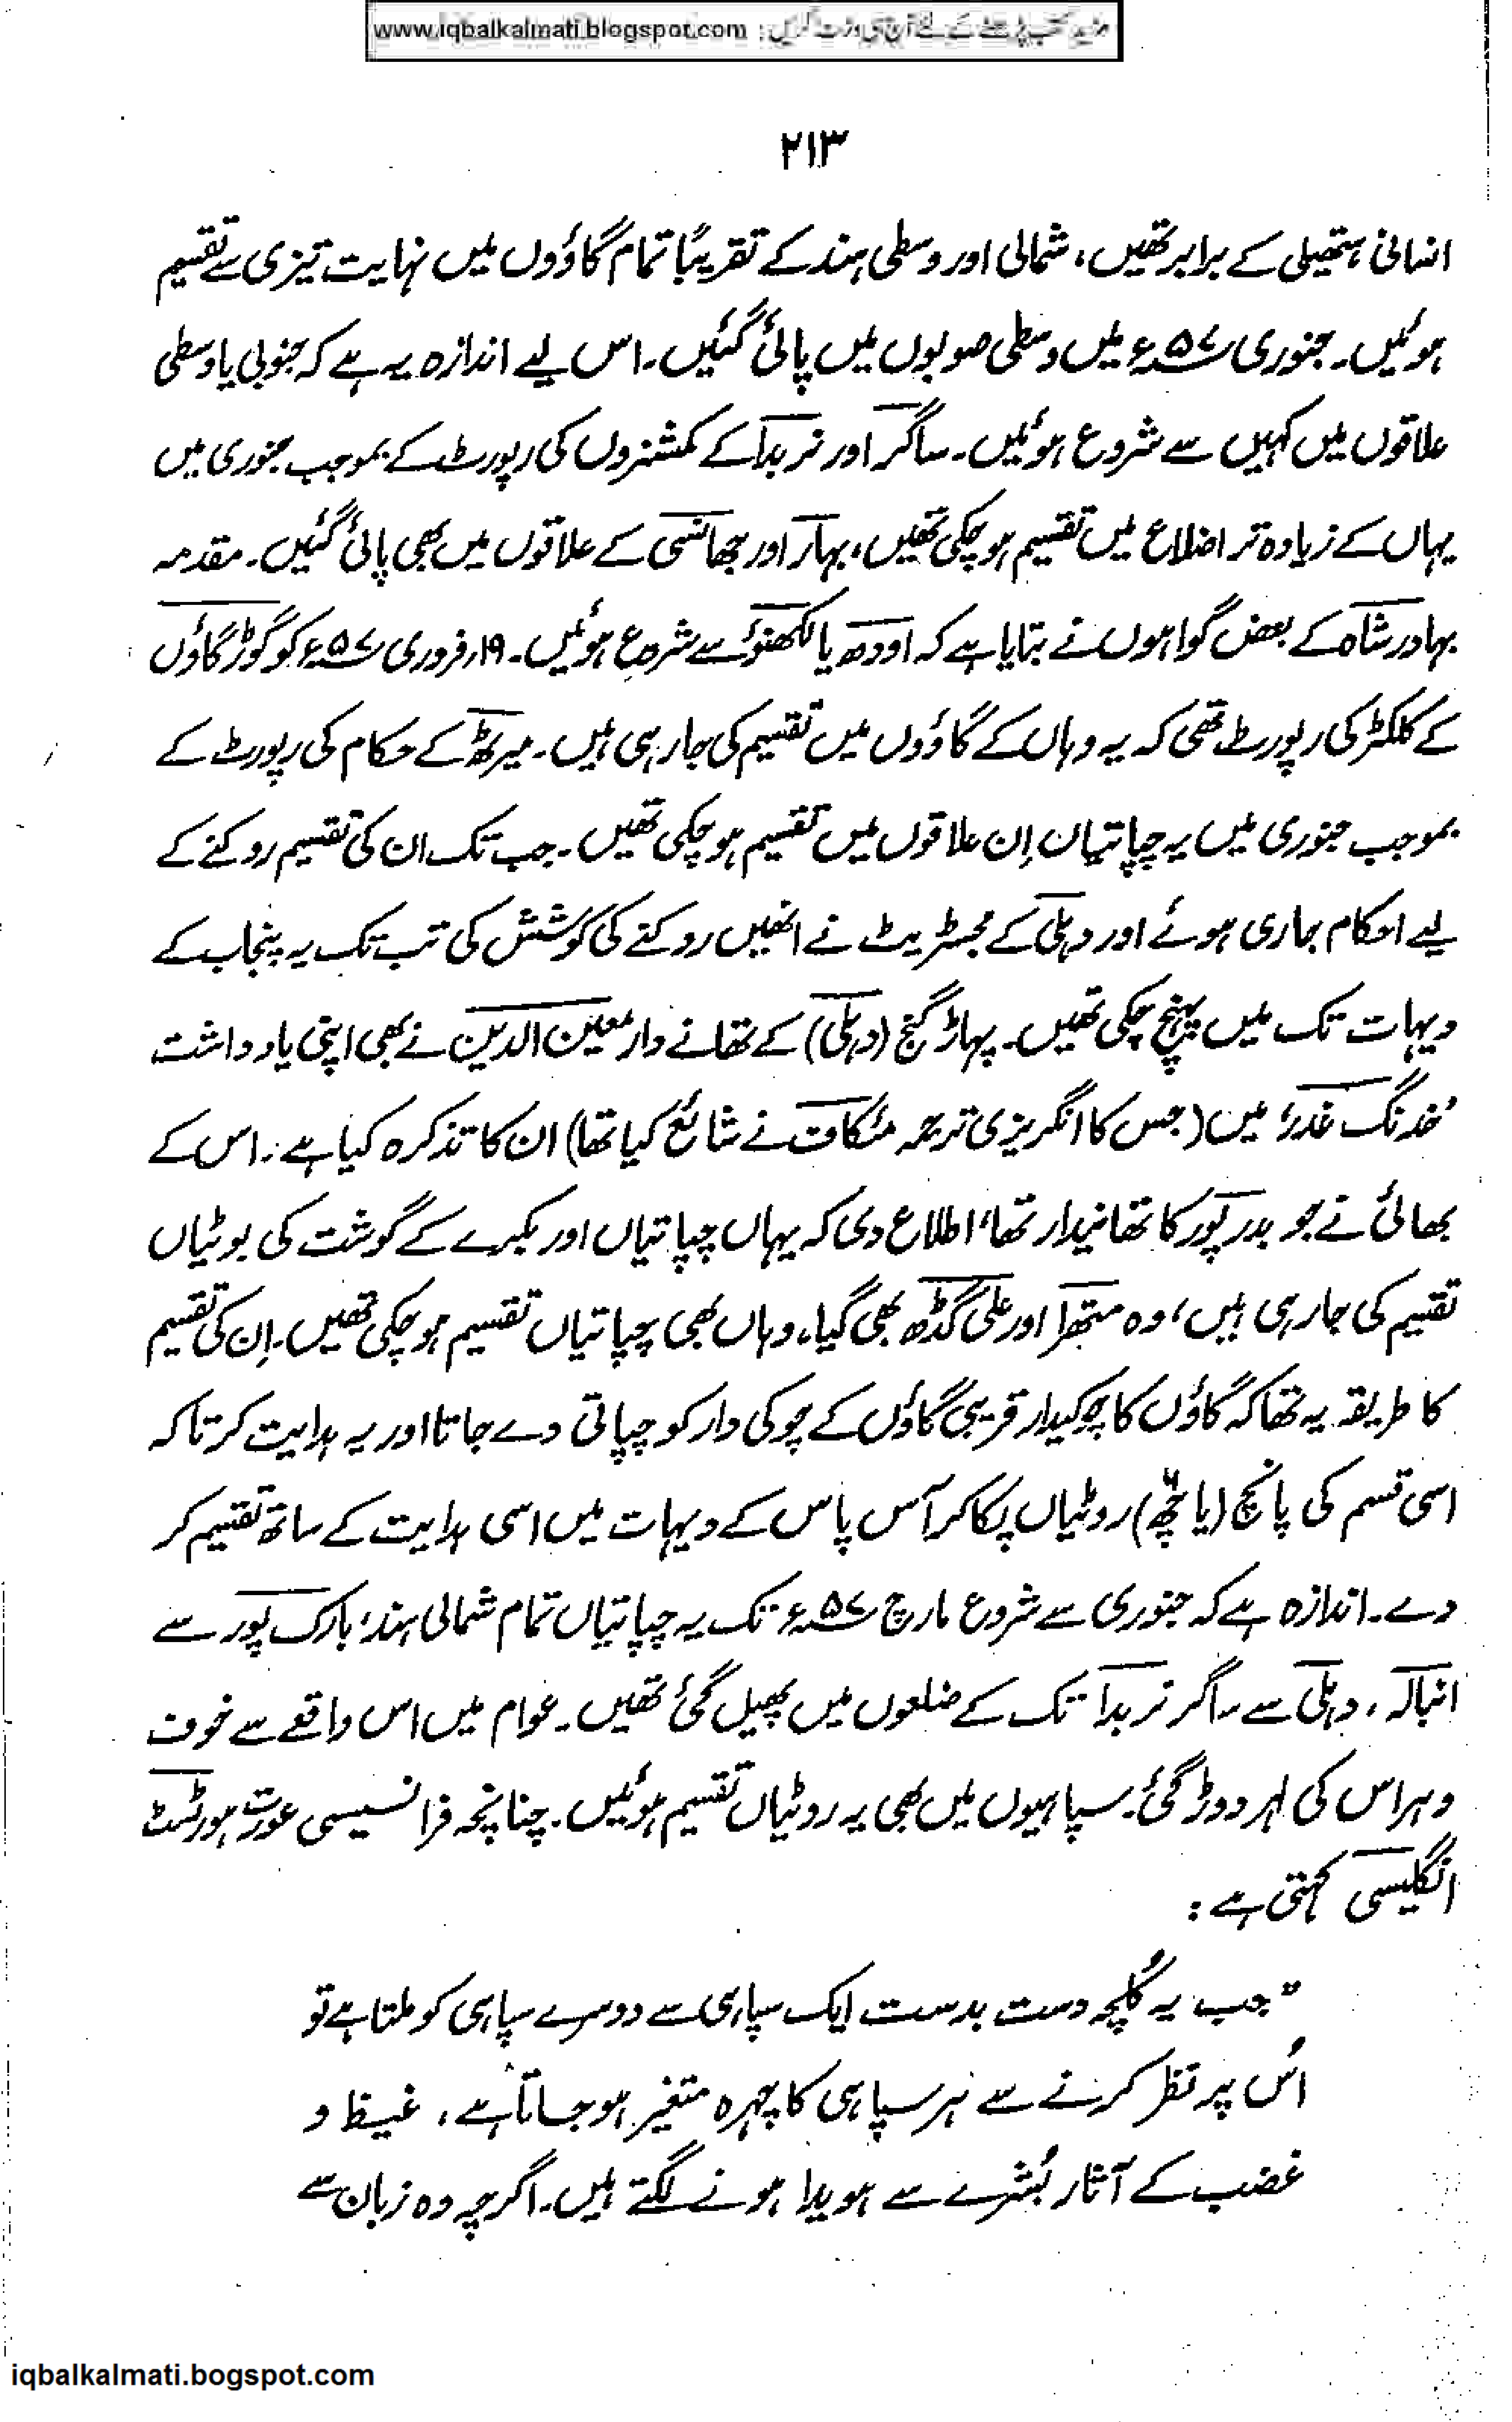 www.iqbalkalmati.blogspot.com : مزید کتب پڑھنے کے لئے آج ہی وزٹ کریں
۲۱۳
انسانی ہتھیلی کے برابر تھیں، شمالی اور وسطی ہند کے تقریباً تمام گاؤوں میں نہایت تیزی سے تقسیم
ہوئیں۔ جنوری ۵۷ء میں وسطی صوبوں میں پائی گئیں۔ اس لیے اندازہ یہ ہے کہ جنوبی یا وسطی
علاقوں میں کہیں سے شروع ہوئیں۔ ساگر اور نربدا کے کمشنروں کی رپورٹ کے بموجب جنوری میں
یہاں کے زیادہ تر اضلاع میں تقسیم ہو چکی تھیں، بہار اور جھانسی کے علاقوں میں بھی پائی گئیں۔ مقدمہ
بہادر شاہ کے بعض گواہوں نے بتایا ہے کہ اودھ یا لکھنؤ سے شروع ہوئیں۔ ۱۹ر فروری ۵۷ء کو گوڑ گاؤں
کے کلکٹر کی رپورٹ تھی کہ یہ وہاں کے گاؤوں میں تقسیم کی جا رہی ہیں۔ میرٹھ کے حکام کی رپورٹ کے
بموجب جنوری میں یہ چپاتیان اِن علاقوں میں تقسیم ہو چکی تھیں۔ جب تک ان کی تقسیم روکنے کے
لیے احکام جاری ہوئے اور دہلی کے مجسٹریٹ نے انھیں روکنے کی کوشش کی تب تک یہ پنجاب کے
دیہات تک میں پہنچ چکی تھیں۔ پہاڑ گنج (دہلی) کے تھانے دار معین الدین نے بھی اپنی یادداشت
'خدنگ غدر' میں (جس کا انگریزی ترجمہ مٹکاف نے شائع کیا تھا) ان کا تذکرہ کیا ہے۔ اس کے
بھائی نے جو بدرپور کا تھانیدار تھا، اطلاع دی کہ یہاں چپاتیاں اور بکرے کے گوشت کی بوٹیاں
تقسیم کی جا رہی ہیں، وہ متھرا اور علی گڈھ بھی گیا، وہاں بھی چپاتیاں تقسیم ہو چکی تھیں۔ اِن کی تقسیم
کا طریقہ یہ تھا کہ گاؤں کا چوکیدار قریبی گاؤں کے چوکی دار کو چپاتی دے جاتا اور یہ ہدایت کرتا کہ
اسی قسم کی پانچ (یا چھّ) روٹیاں پکا کر آس پاس کے دیہات میں اسی ہدایت کے ساتھ تقسیم کر
دے۔ اندازہ ہے کہ جنوری سے شروع مارچ ۵۷ء تک یہ چپاتیاں تمام شمالی ہند؛ بارک پور سے
انبالہ، دہلی سے ساگر نربدا تک کے ضلعوں میں پھیل گئی تھیں۔ عوام میں اس واقعے سے خوف
وہراس کی لہر دوڑ گئی۔ سپاہیوں میں بھی یہ روٹیاں تقسیم ہوئیں۔ چنانچہ فرانسیسی عورت ہورٹسٹ
انگلیسی کہتی ہے :
"جب یہ کُلچہ دست بدست ایک سپاہی سے دوسرے سپاہی کو ملتا ہے تو
اُس پر نظر کرنے سے ہر سپاہی کا چہرہ متغیر ہو جاتا ہے، غیظ و
غضب کے آثار بُشرے سے ہویدا ہونے لگتے ہیں۔ اگرچہ وہ زبان سے
iqbalkalmati.bogspot.com